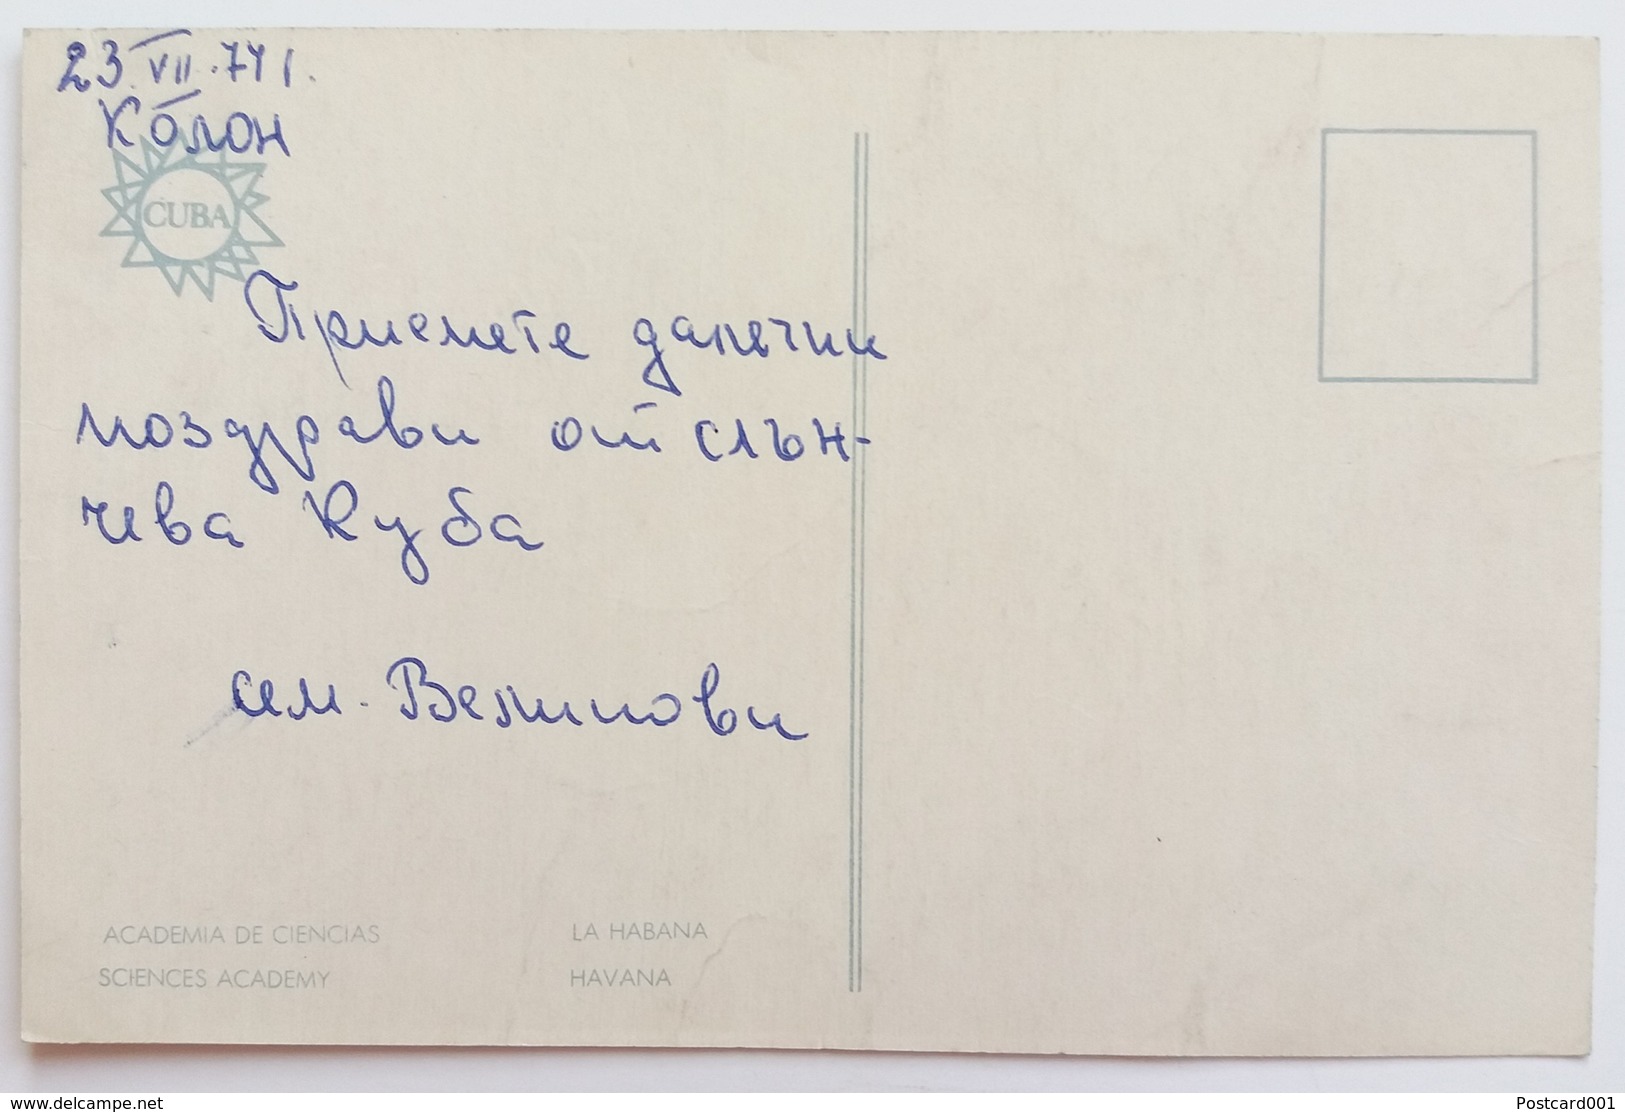 23.VII.74 г.
Колон
CUBA
Приемете далечни
поздрави от слън-
чева Куба
сем. Великови
ACADEMIA DE CIENCIAS
SCIENCES ACADEMY
LA HABANA
HAVANA
www.delcampe.net
Postcard001